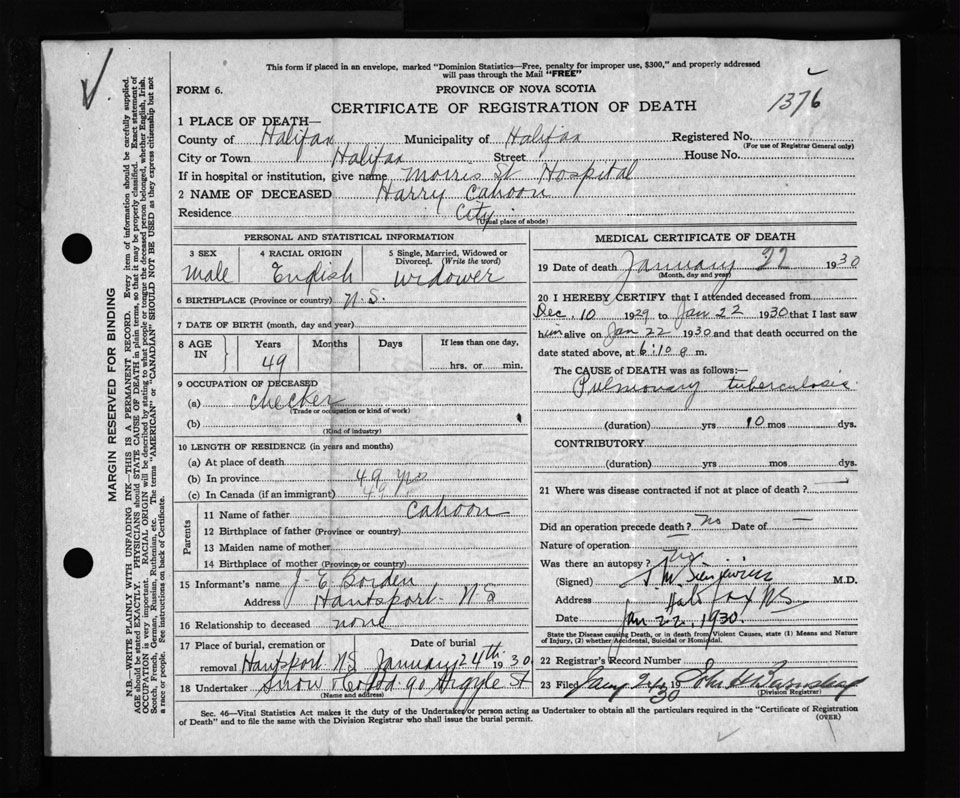 This form if placed in an envelope, marked "Dominion Statistics—Free, penalty for improper use, $300," and properly addressed
will pass through the Mail "FREE"
FORM 6.
PROVINCE OF NOVA SCOTIA
CERTIFICATE OF REGISTRATION OF DEATH
1376
1 PLACE OF DEATH—
County of Halifax Municipality of Halifax Registered No.
(For use of Registrar General only)
City or Town Halifax Street House No.
If in hospital or institution, give name Morris St. Hospital
2 NAME OF DECEASED Harry Cahoon
Residence City
(Usual place of abode)
PERSONAL AND STATISTICAL INFORMATION
3 SEX Male
4 RACIAL ORIGIN English
5 Single, Married, Widowed or Divorced. (Write the word) Widower
6 BIRTHPLACE (Province or country) N.S.
7 DATE OF BIRTH (month, day and year)
8 AGE IN Years Months Days If less than one day,
49 hrs. or min.
9 OCCUPATION OF DECEASED
(a) Checker
(Trade or occupation or kind of work)
(b)
(Kind of industry)
10 LENGTH OF RESIDENCE (in years and months)
(a) At place of death
(b) In province 49 yrs
(c) In Canada (if an immigrant) 49
Parents
11 Name of father Cahoon
12 Birthplace of father (Province or country)
13 Maiden name of mother
14 Birthplace of mother (Province or country)
15 Informant's name J. E. Borden
Address Hantsport N S
16 Relationship to deceased none
17 Place of burial, cremation or removal Hantsport N S
Date of burial January 24th 1930
18 Undertaker Snow & Co Ltd 90 Argyle St
(Name and address)
MEDICAL CERTIFICATE OF DEATH
19 Date of death January 22 1930
(Month, day and year)
20 I HEREBY CERTIFY that I attended deceased from
Dec. 10 1929 to Jan 22 1930 that I last saw
him alive on Jan 22 1930 and that death occurred on
date stated above, at 6:10 a m.
The CAUSE OF DEATH was as follows:—
Pulmonary tuberculosis
(duration) yrs 10 mos dys.
CONTRIBUTORY
(duration) yrs mos dys.
21 Where was disease contracted if not at place of death? —
Did an operation precede death? no Date of —
Nature of operation
Was there an autopsy? no
(Signed) M.D.
Address Halifax NS
Date Jan 22, 1930.
State the Disease causing Death, or in death from Violent Causes, state (1) Means and Nature
of Injury, (2) whether Accidental, Suicidal or Homicidal.
22 Registrar's Record Number
23 Filed 24 1930
(Division Registrar)
Sec. 46—Vital Statistics Act makes it the duty of the Undertaker or person acting as Undertaker to obtain all the particulars required in the "Certificate of Registration
of Death" and to file the same with the Division Registrar who shall issue the burial permit.
(OVER)
MARGIN RESERVED FOR BINDING
N.B.—WRITE PLAINLY WITH UNFADING INK—THIS IS A PERMANENT RECORD. Every item of information should be carefully supplied.
AGE should be stated EXACTLY. PHYSICIANS should STATE CAUSE OF DEATH in plain terms, so that it may be properly classified. Exact statement of
OCCUPATION is very important. RACIAL ORIGIN will be described by stating to what people or tongue the deceased person belonged, whether English, Irish,
Scotch, French, German, Russian, Ruthenian, etc. The terms "AMERICAN" or "CANADIAN" SHOULD NOT BE USED as they express citizenship but not
a race or people. See instructions on back of Certificate.